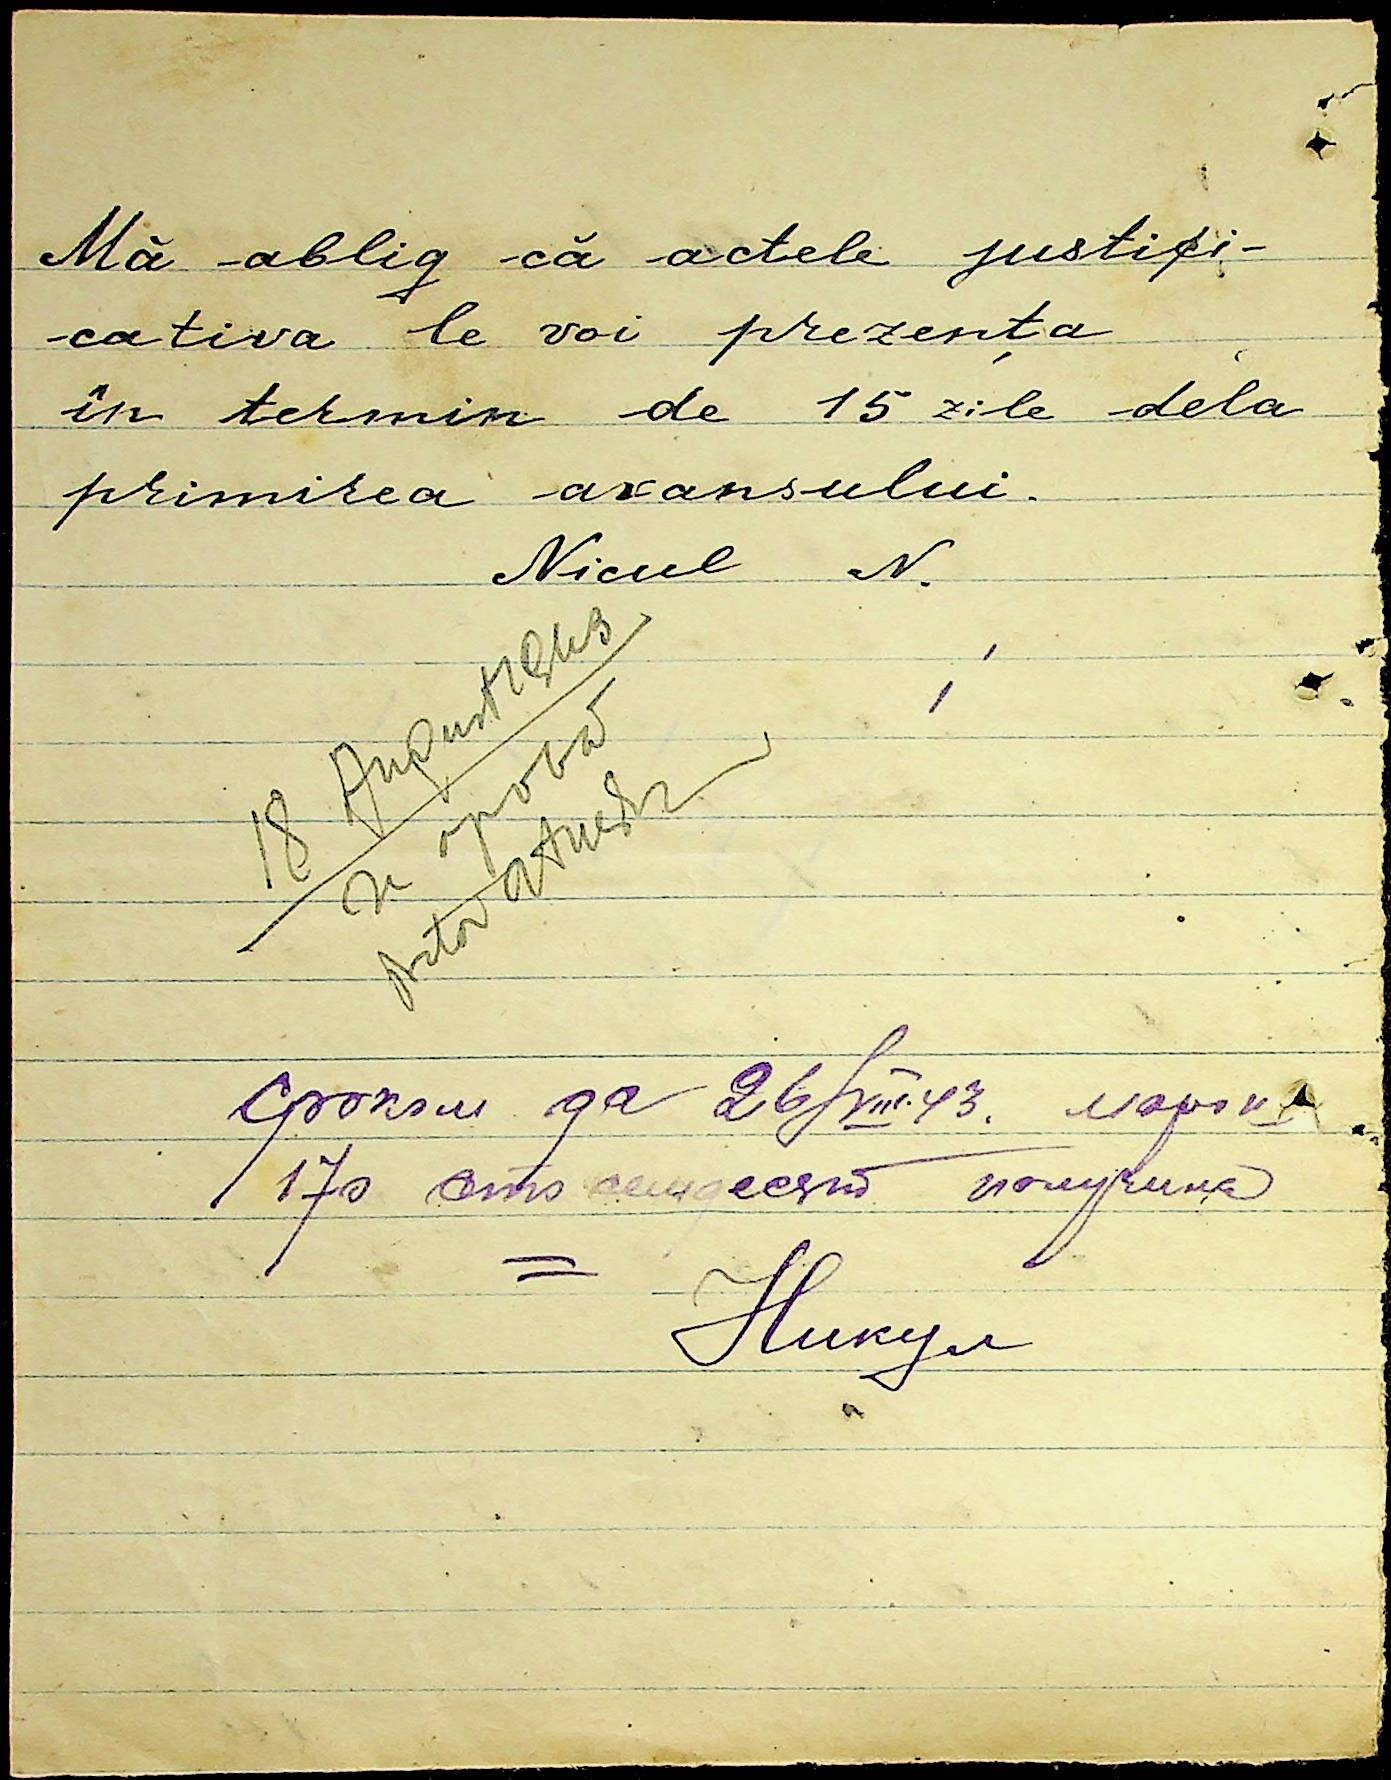 Mă ablig că actele justifi-
cativa le voi prezența
în termin de 15 zile dela
primirea avansului.
Nicul N.
18 August 1943
сроком да 26/VIII.43. марок
170 сто семдесят получила
Никул